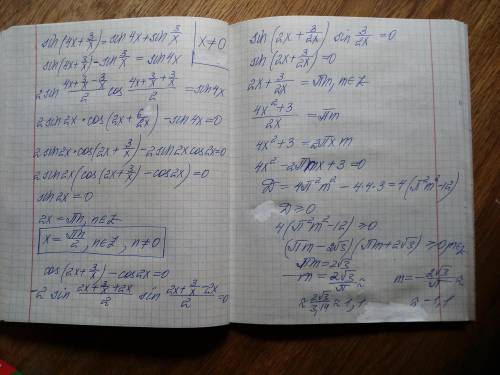 sin(4x+3/x) = sin4x + sin 3/x
x≠0
sin(4x+3/x) - sin 3/x = sin4x
2sin (4x+3/x-3/x)/2 cos (4x+3/x+3/x)/2 = sin4x
2sin2x·cos(2x+6/2x) - sin4x=0
2sin2x·cos(2x+3/x) - 2sin2x cos2x=0
2sin2x(cos(2x+3/x) - cos2x)=0
sin2x=0
2x=πn, n∈Z
x=πn/2, n∈Z, n≠0
cos(2x+3/x) - cos2x=0
-2 sin (2x+3/x+2x)/2 sin (2x+3/x-2x)/2 =0
sin(2x+3/2x) sin 3/2x =0
sin(2x+3/2x)=0
2x+3/2x = πm, m∈Z
(4x²+3)/2x = πm
4x²+3=2πxm
4x²-2πmx+3=0
D=4π²m²-4·4·3=4(π²m²-12)
D≥0
4(π²m²-12)≥0
(πm-2√3)(πm+2√3)≥0, m∈Z
πm=2√3
m=2√3/π≈ m=-2√3/π≈
≈2√3/3,14≈1,1 ≈-1,1